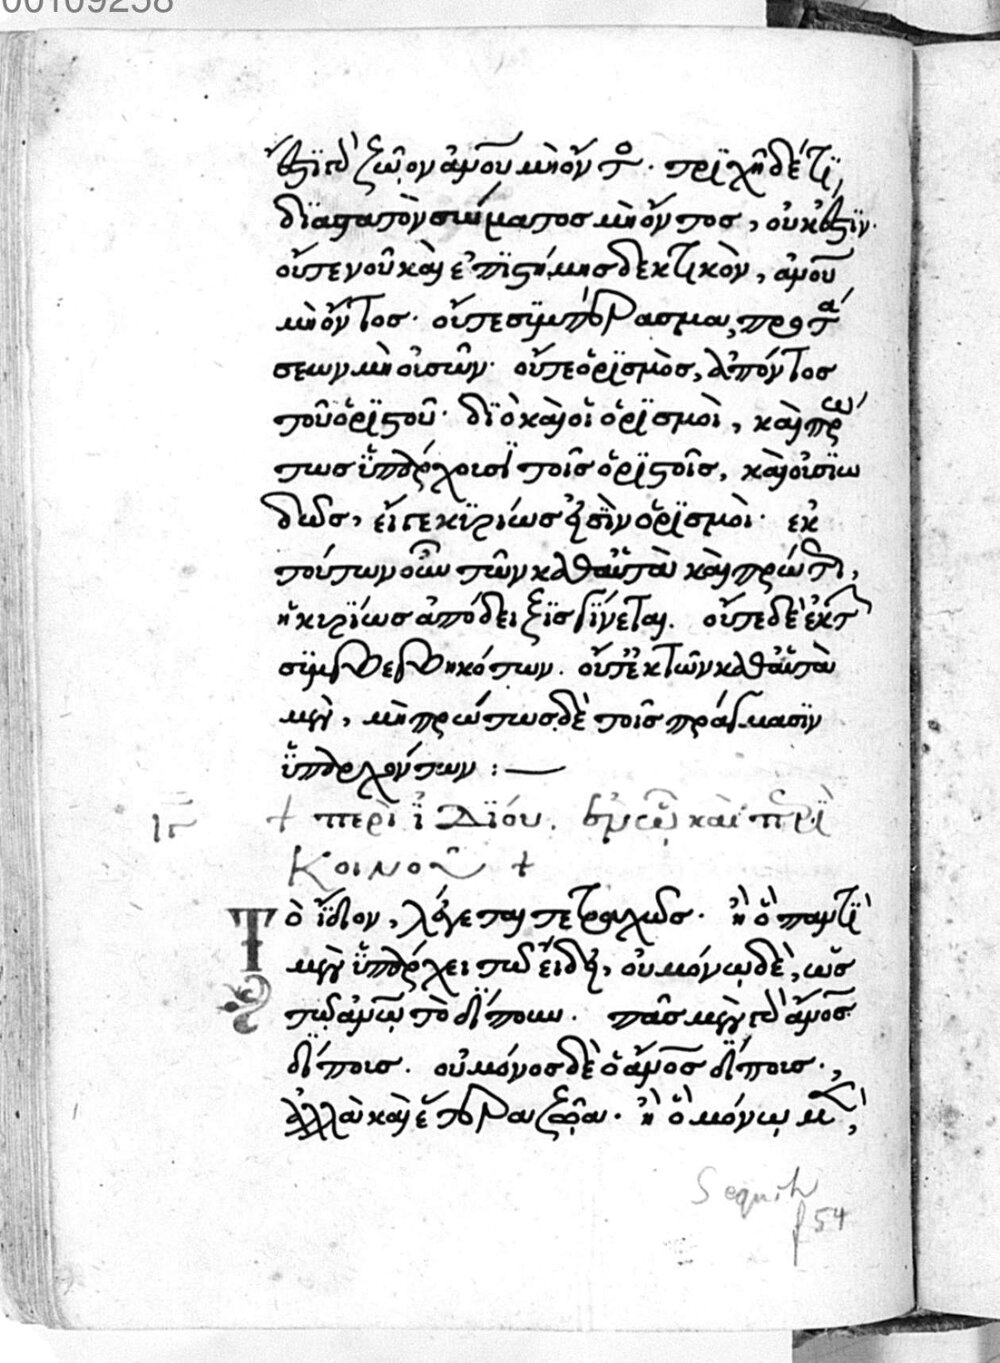 00109258
ἐστὶ τὸ ζῷον ἀνου μὴ ὄντος. τριχῇ δέ τι
διαστατὸν σώματος μὴ ὄντος, οὐκ ἔστιν.
οὔτε νοῦ καὶ ἐπιστήμης δεκτικὸν, ἀνου
μὴ ὄντος. οὔτε συμπέρασμα, προτά
σεων μὴ οὐσῶν. οὔτε ὁρισμὸς, ἀπόντος
τοῦ ὁριστοῦ. διὸ καὶ οἱ ὁρισμοὶ, καὶ πρώ
τως ὑπάρχουσι τοῖς ὁριστοῖς, καὶ οὐσιω
δῶς, εἴτε κυρίως εἰσὶν ὁρισμοὶ. ἐκ
τούτων οὖν τῶν καθαὑτὰ καὶ πρώτων,
ἡ κυρίως ἀπόδειξις γίνεται. οὔτε δὲ ἐκ τῶν
συμβεβηκότων. οὔτε ἐκ τῶν καθαὑτὰ
μὲν, μὴ πρώτως δὲ τοῖς πράγμασιν
ὑπαρχόντων :—
+ περὶ ἰδίου. καὶ περὶ
κοινοῦ +
Τὸ ἴδιον, λέγεται τετραχῶς. ἢ ὃ παντὶ
μὲν ὑπάρχει τῷ εἴδει, οὐ μόνῳ δὲ, ὡς
τῷ ἀνῳ τὸ δίπουν. πᾶς μὲν γὰρ ἄνος
δίπους. οὐ μόνος δὲ ὁ ἄνος δίπους.,
ἀλλὰ καὶ ἕτερα ζῷα. ἢ ὃ μόνῳ μὲν,
Sequitur
f 54